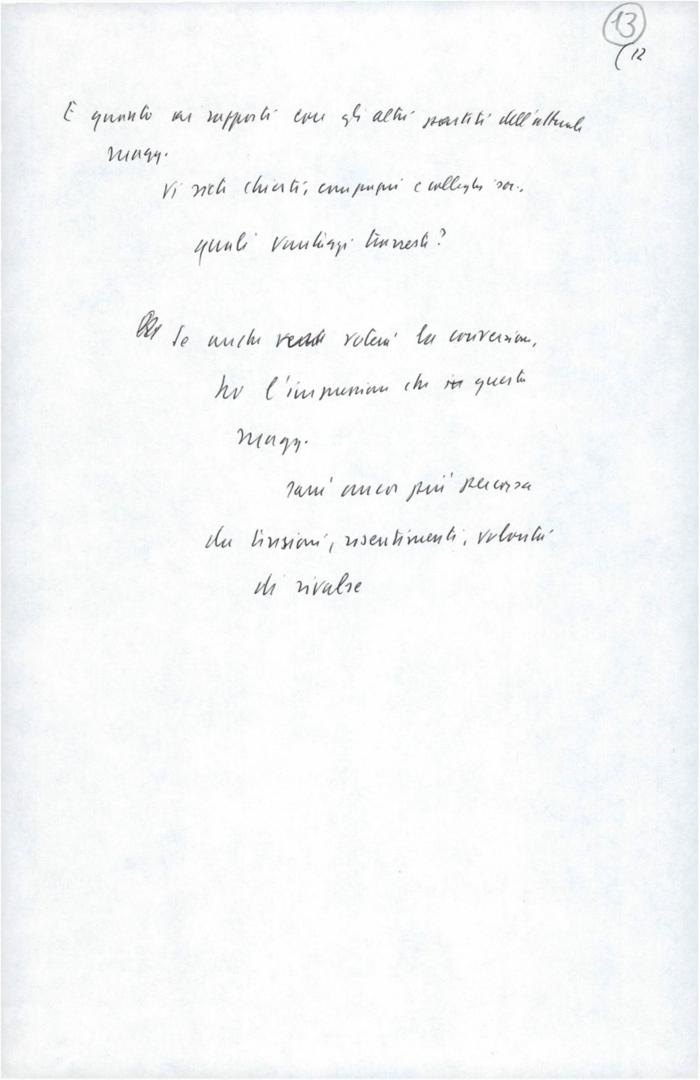 13
(12
E quanto ai rapporti con gli altri partiti dell'attuale
magg.
Vi siete chiesti, compagni e colleghi soc.,
quali vantaggi trarreste?
Se anche voterà la conversione,
ho l'impressione che questa
magg.
sarà ancor più percorsa
da tensioni, risentimenti, volontà
di rivalse